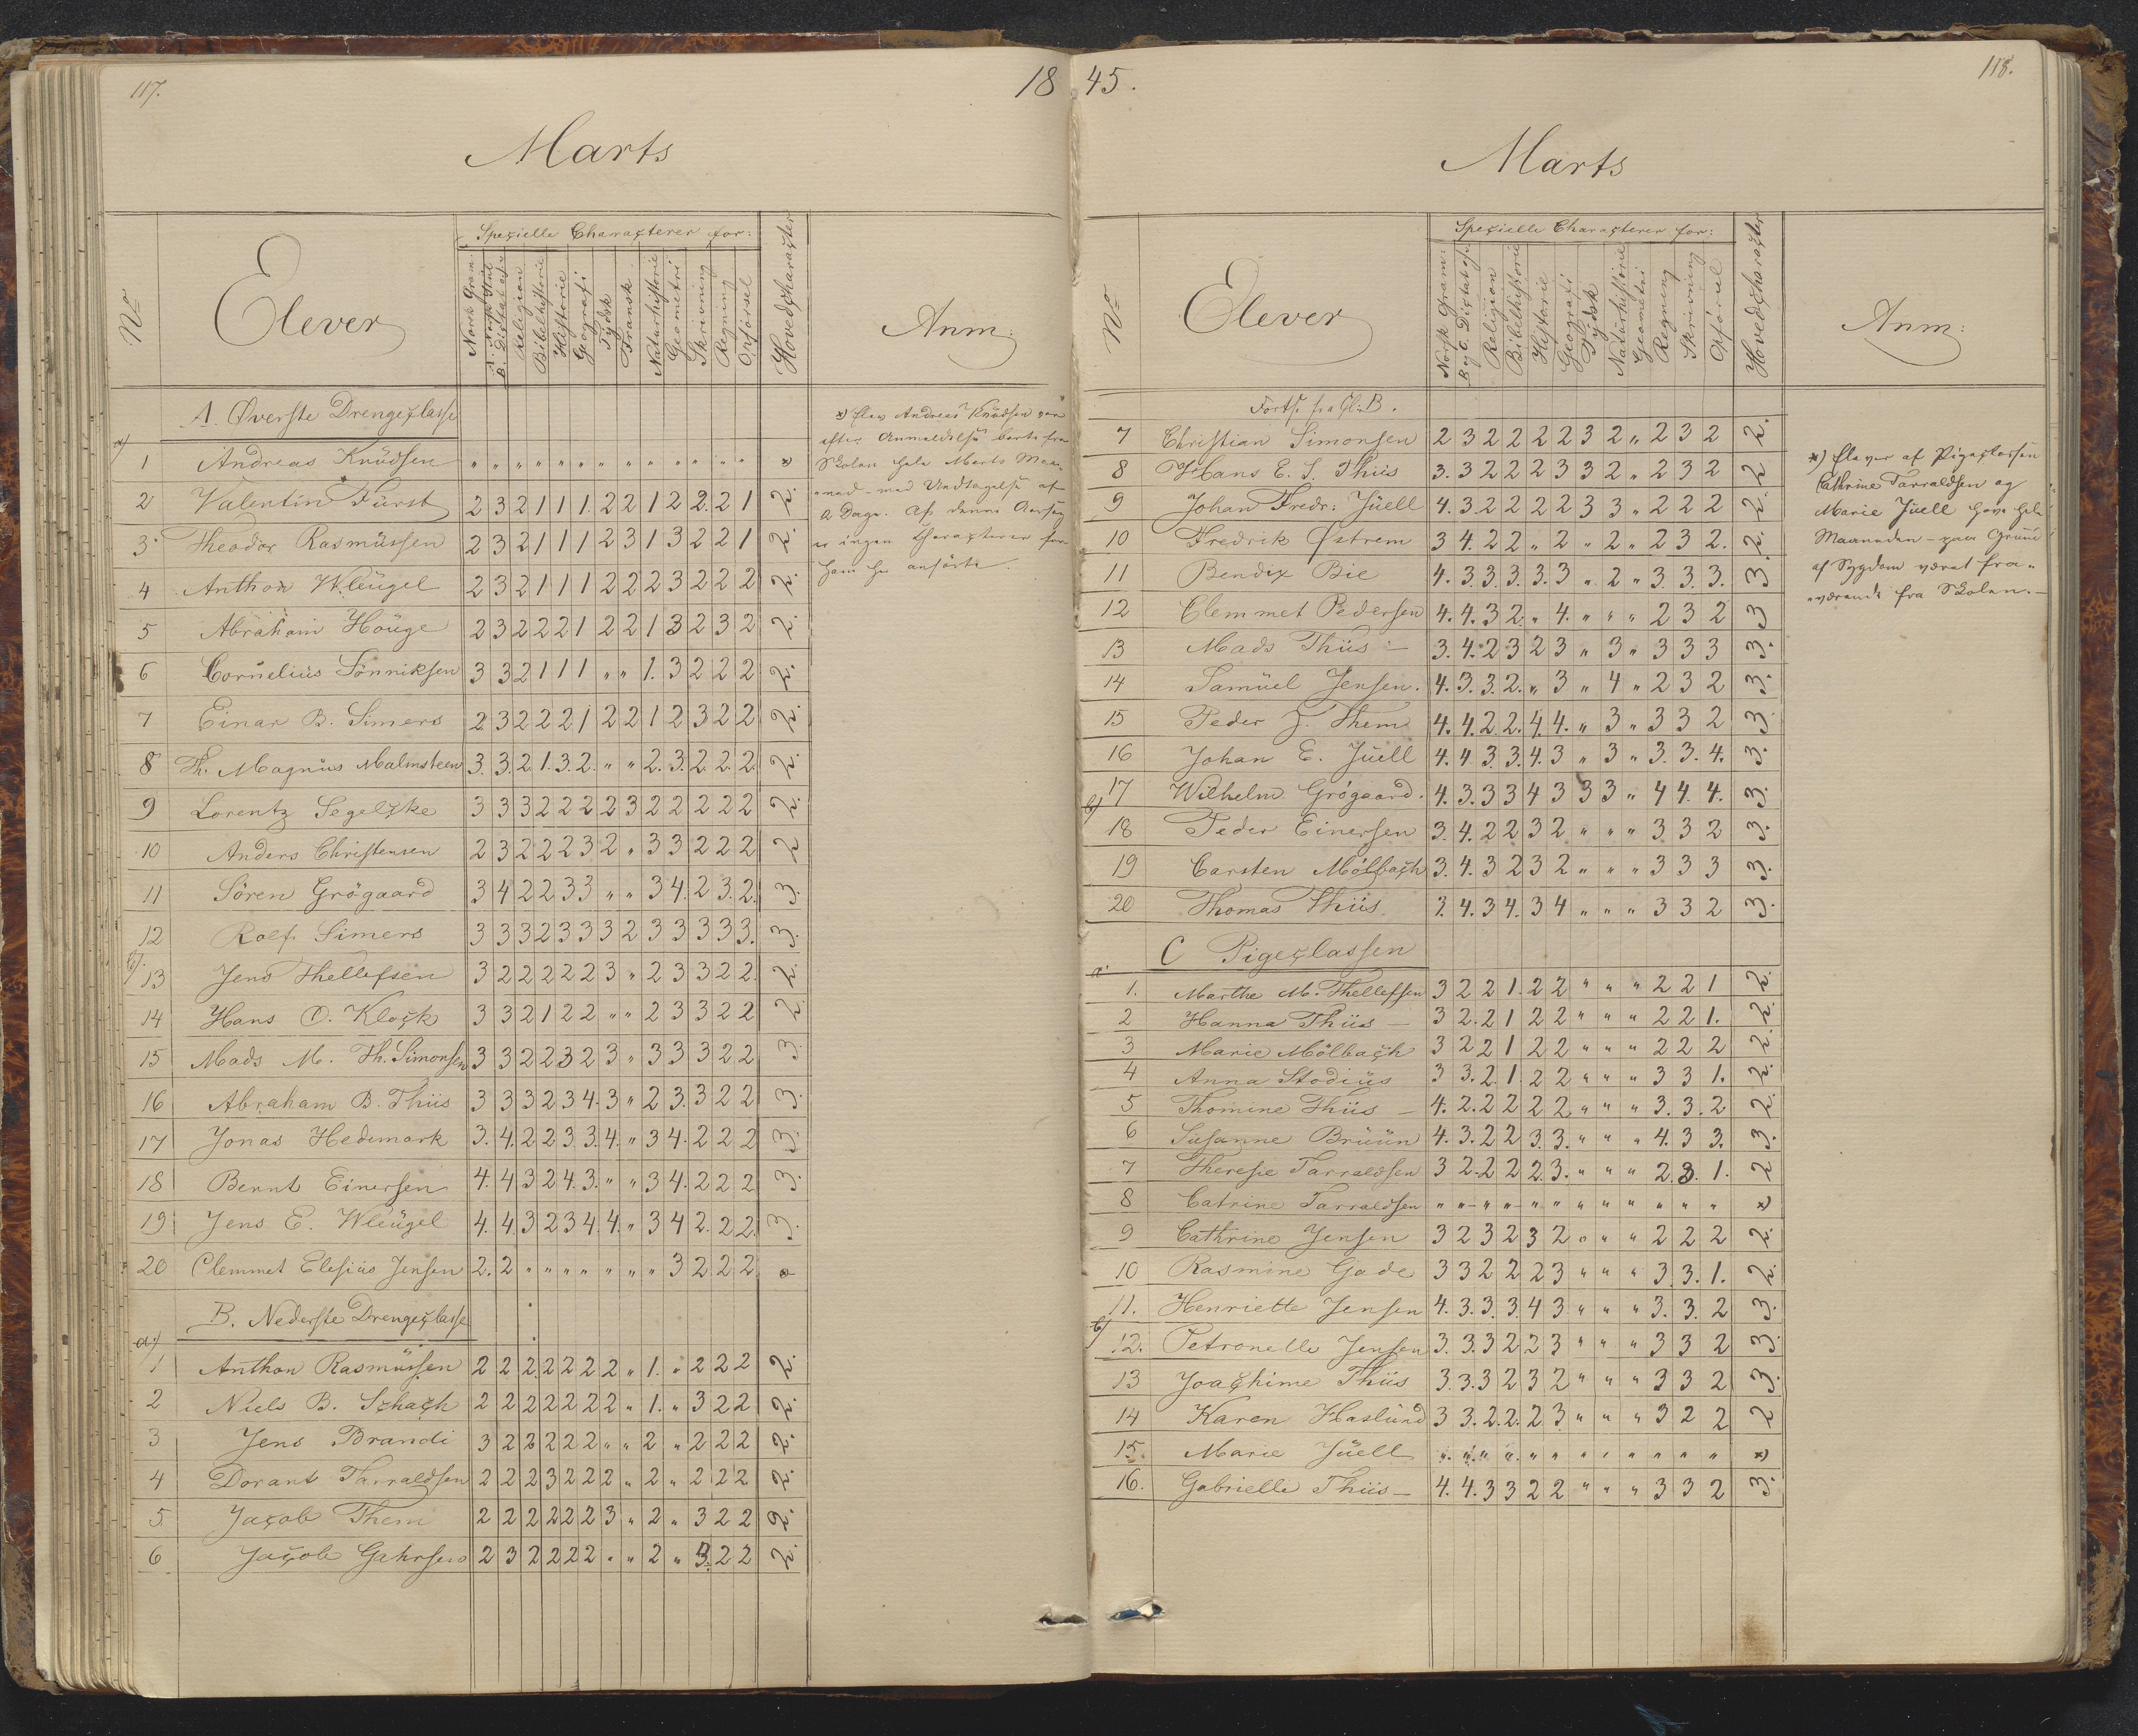 117.
18
Marts
No
Elever
Specielle Characterer for:
Norsk Gram.
A. Norsk Stiil
B. Dictat af.
Religion
Bibelhistorie
Historie
Geografi
Tydsk
Fransk
Naturhistorie
Geometri
Skrivning
Regning
Opførsel
Hovedcharacter
Anm:
A. Øverste Drengeclasse
a)
1 Andreas Knudsen " " " " " " " " " " " " " " *
2 Valentin Fürst 2 3 2 1 1 1 2 2 1 2 2 2 1 2.
3 Theodor Rasmussen 2 3 2 1 1 1 2 3 1 3 2 2 1 2.
4 Anthon Wleugel 2 3 2 1 1 1 2 2 2 3 2 2 2 2.
5 Abraham Houge 2 3 2 2 2 1 2 2 1 3 2 3 2 2.
6 Cornelius Sönniksen 3 3 2 1 1 1 " " 1. 3 2 2 2 2.
7 Einar B. Simers 2 3 2 2 2 1 2 2 1 2 3 2 2 2.
8 Th. Magnus Malmsteen 3. 3. 2 1. 3. 2. " " 2. 3. 2. 2. 2. 2.
9 Lorentz Segelcke 3 3 3 2 2 2 2 3 2 2 2 2 2 2.
10 Anders Christensen 2 3 2 2 2 3 2 " 3 3 2 2 2 2
11 Sören Grögaard 3 4 2 2 3 3 " " 3 4. 2 3. 2. 3.
12 Rolf Simers 3 3 3 2 3 3 3 2 3 3 3 3 3. 3.
b).
13 Jens Thellefsen 3 2 2 2 2 2 3 " 2 3 3 2 2. 2.
14 Hans O. Klock 3 3 2 1 2 2 " " 2 3 3 2 2 2.
15 Mads M. Th. Simonsen 3 3 2 2 3 2 3 " 3 3 3 2 2 3.
16 Abraham B. Thiis 3 3 3 2 3 4. 3 " 2 3. 3 2 2 3.
17 Jonas Hedemark 3. 4. 2 2 3 3. 4. " 3 4. 2 2 2 3.
18 Bernt Einersen 4. 4 3 2 4. 3. " " 3 4. 2 2 2 3.
19 Jens E. Wleugel 4. 4. 3 2 3 4. 4. " 3 4 2. 2 2. 3.
20 Clemmet Elesius Jensen 2. 2 " " " " " " " 3 2 2 2 *
B. Nederste Drengeclasse
a)
1 Anthon Rasmussen 2 2 2. 2 2 2 2 " 1. " 2 2 2 2.
2 Niels B. Schach 2 2 2 2 2 2 2 " 1. " 3 2 2 2.
3 Jens Brandi 3 2 2 2 2 2 " " 2 " 2 2 2 2.
4 Dorant Tarraldsen 2 2 2 3 2 2 2 " 2 " 2 2 2 2.
5 Jacob Them 2 2 2 2 2 2 3 " 2 " 3 2 2 2.
6 Jacob Gahrsen 2 3 2 2 2 2 " " 2 " 3. 2 2 2.
*) Elev Andreas Knudsen var
efter Anmeldelse borte fra
Skolen hele Marts Maa-
-ned - med Undtagelse af
2 Dage. Af denne Aarsag
er ingen Characterer for
ham her anførte.
45.
118.
Marts
No
Elever
Specielle Characterer for:
Norsk Gram:
B og C. Dictat af.
Religion
Bibelhistorie
Historie
Geografi
Tydsk
Naturhistorie
Geometri
Regning
Skrivning
Opførsel
Hovedcharacter
Anm:
Forts. fra Cl: B.
7 Christian Simonsen 2 3 2 2 2 2 3 2 " 2 3 2 2.
8 Hans E. S. Thiis 3. 3 2 2 2 3 3 2 " 2 3 2 2
9 Johan Fredr: Juell 4. 3. 2 2 2 2 3 3 " 2 2 2 2.
10 Fredrik Østrem 3 4. 2 2 " 2 " 2 " 2 3 2. 2.
11 Bendix Bie 4. 3. 3. 3. 3. 3 " 2 " 3. 3. 3. 3.
12 Clemmet Pedersen 4. 4. 3 2. " 4. " " " 2 3 2 3
13 Mads Thiis - 3. 4. 2 3 2 3 " 3 " 3 3 3 3.
14 Samuel Jensen. 4. 3. 3. 2. " 3 " 4 " 2 3 2 3.
15 Peder J. Them 4. 4. 2 2. 4. 4. " 3 " 3 3 2 3.
16 Johan E. Juell 4. 4 3. 3. 4. 3 " 3 " 3. 3. 4. 3.
17 Wilhelm Grögaard. 4. 3. 3 3 4 3 3 3 " 4 4. 4. 3.
b)
18 Peder Einersen 3. 4. 2 2 3 2 " " " 3 3 2 3.
19 Carsten Mölbach 3. 4. 3 2 3 2 " " " 3 3 3 3.
20 Thomas Thiis 3. 4. 3 4. 3 4 " " " 3 3 2 3.
C Pigeclassen
a.
1. Marthe M. Thellefsen 3 2 2 1. 2 2 " " " 2 2 1 2.
2 Hanna Thiis - 3 2. 2 1 2 2 " " " 2 2 1. 2.
3 Marie Mölbach 3 2 2 1 2 2 " " " 2 2 2 2.
4 Anna Stodius 3 3. 2. 1. 2 2 " " " 3 3 1. 2.
5 Thomine Thiis - 4. 2. 2 2 2 2 " " " 3. 3. 2 2.
6 Susanne Bruun 4. 3. 2 2 3. 3. " " " 4. 3 3. 3.
7 Therese Tarraldsen 3 2. 2 2 2. 3. " " " 2. 3. 1. 2
8 Catrine Tarraldsen " " " " " " " " " " " " *
9 Cathrine Jensen 3 2 3 2 3 2 " " " 2 2 2 2.
10 Rasmine Gade 3 3 2 2 2 3 " " " 3. 3. 1. 2.
11. Henriette Jensen 4. 3. 3. 3 4 3 " " " 3. 3. 2 3.
b)
12. Petronelle Jensen 3. 3. 3 2 2 3 " " " 3 3 2 3.
13 Joachime Thiis 3. 3. 3 2 3 2 " " " 3 3 2 3.
14 Karen Haslund 3 3. 2. 2. 2 3. " " " 3 2 2 2
15. Marie Juell " " " " " " " " " " " " *
16. Gabrielle Thiis - 4. 4. 3 3 2 2 " " " 3 3 2 3.
*) Elever af Pigeclassen
Cathrine Tarraldsen og
Marie Juell have hele
Maaneden - paa Grund
af Sygdom været fra-
-værende fra Skolen. -